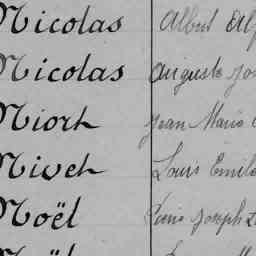 Nicolas Albert
Nicolas Auguste Jos
Niort Jean Marie
Nivet Louis Emile
Noël Pierre Joseph